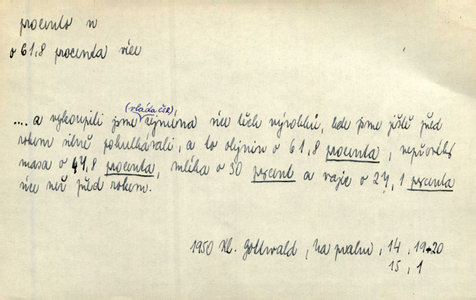 procento n
o 61,8 procenta více
(vláda ČSR)
.... a vykoupili jsme zejména více těch výrobků, kde jsme ještě před
rokem silně pokulhávali, a to olejnin o 61,8 procenta, vepřového
masa o 47,8 procenta, mléka o 30 procent a vajec o 27,1 procenta
více než před rokem.
1950 Kl. Gottwald, Na prahu, 14, 19-20
15, 1